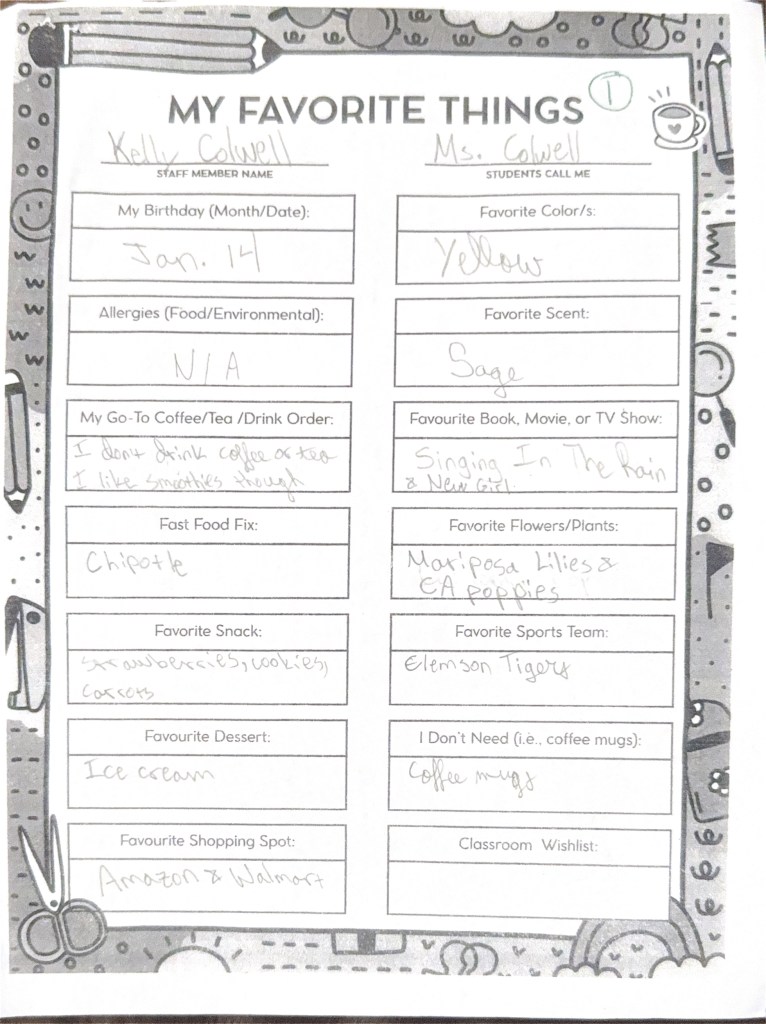 MY FAVORITE THINGS
1
Kelly Colwell
STAFF MEMBER NAME
Ms. Colwell
STUDENTS CALL ME
My Birthday (Month/Date):
Jan. 14
Favorite Color/s:
Yellow
Allergies (Food/Environmental):
N/A
Favorite Scent:
Sage
My Go-To Coffee/Tea /Drink Order:
I dont drink coffee or tea
I like smoothies though
Favourite Book, Movie, or TV Show:
Singing In The Rain
& New Girl
Fast Food Fix:
Chipotle
Favorite Flowers/Plants:
Mariposa Lilies &
CA poppies
Favorite Snack:
strawberries, cookies,
carrots
Favorite Sports Team:
Clemson Tigers
Favourite Dessert:
Ice cream
I Don't Need (i.e., coffee mugs):
Coffee mugs
Favourite Shopping Spot:
Amazon & Walmart
Classroom Wishlist: